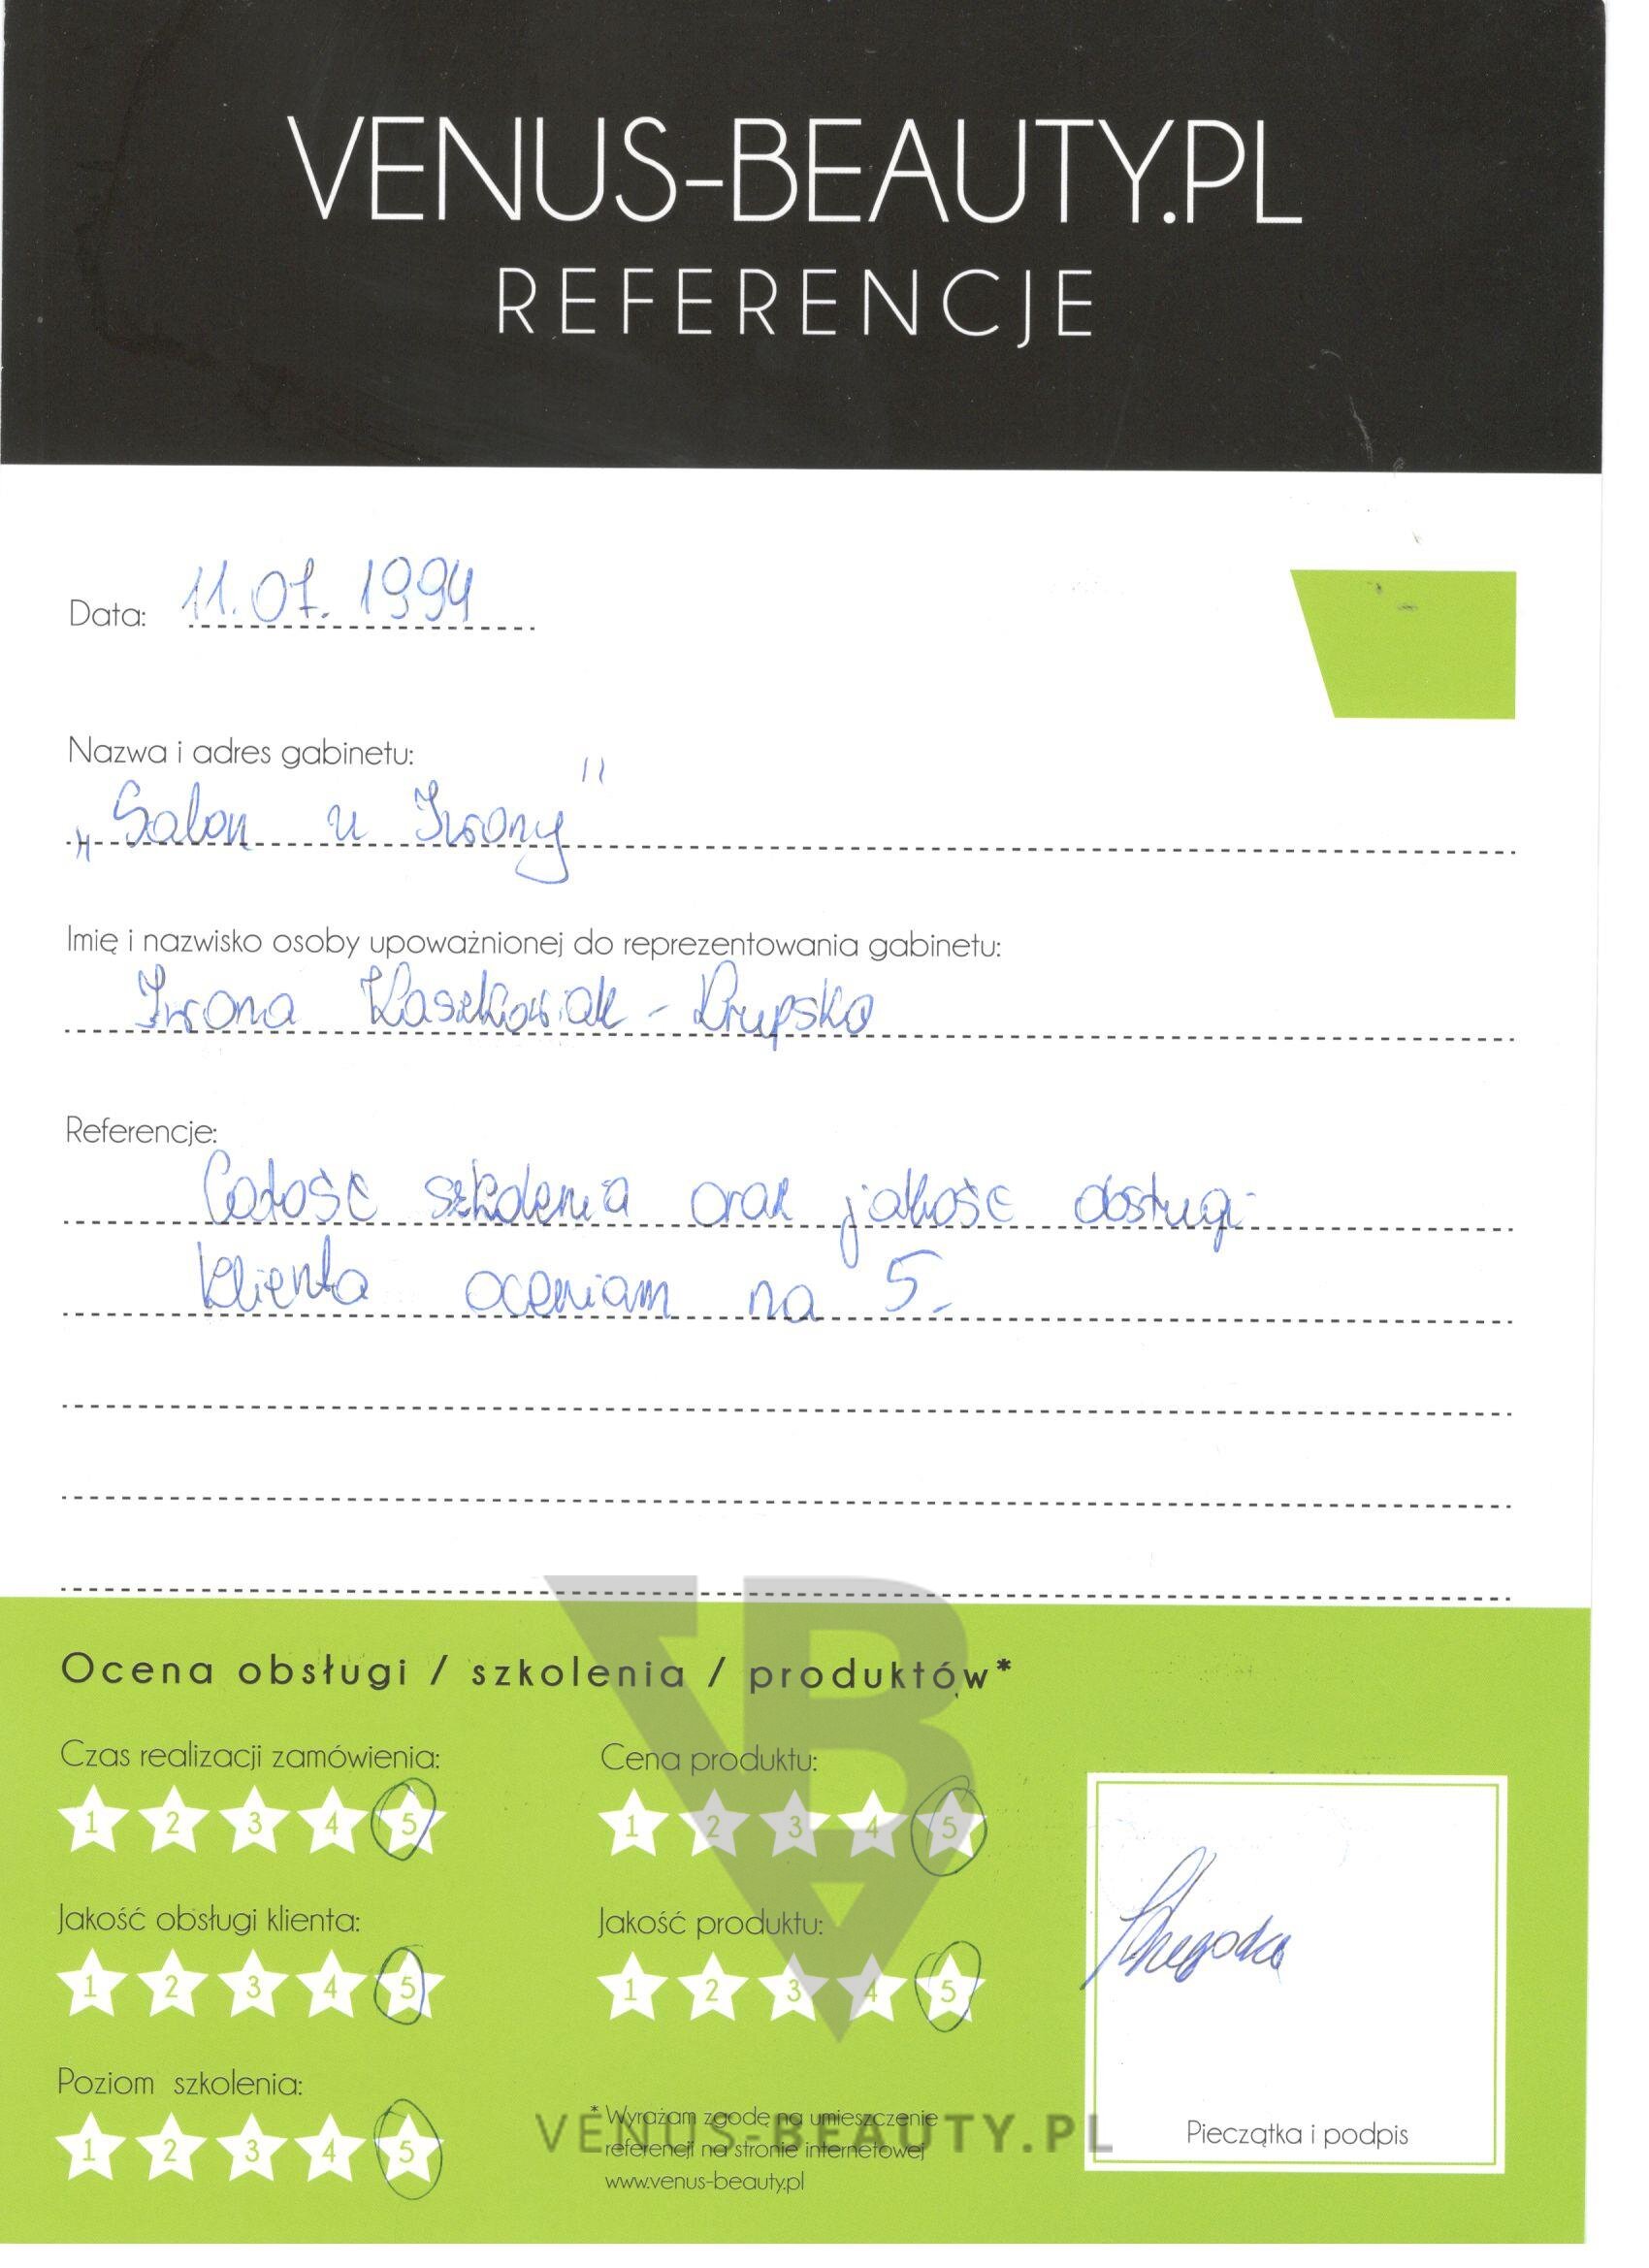 VENUS-BEAUTY.PL
REFERENCJE
Data: 11.07.1994
Nazwa i adres gabinetu:
„Salon u Iwony"
Imię i nazwisko osoby upoważnionej do reprezentowania gabinetu:
Iwona Kaszkowiak - Krupska
Referencje:
Całość szkolenia oraz jakość obsługi
klienta oceniam na 5.
Ocena obsługi / szkolenia / produktów*
Czas realizacji zamówienia:
1 2 3 4 5
Cena produktu:
1 2 3 4 5
Jakość obsługi klienta:
1 2 3 4 5
Jakość produktu:
1 2 3 4 5
Poziom szkolenia:
1 2 3 4 5
* Wyrażam zgodę na umieszczenie
referencji na stronie internetowej
www.venus-beauty.pl
Pieczątka i podpis
VBA
VENUS-BEAUTY.PL